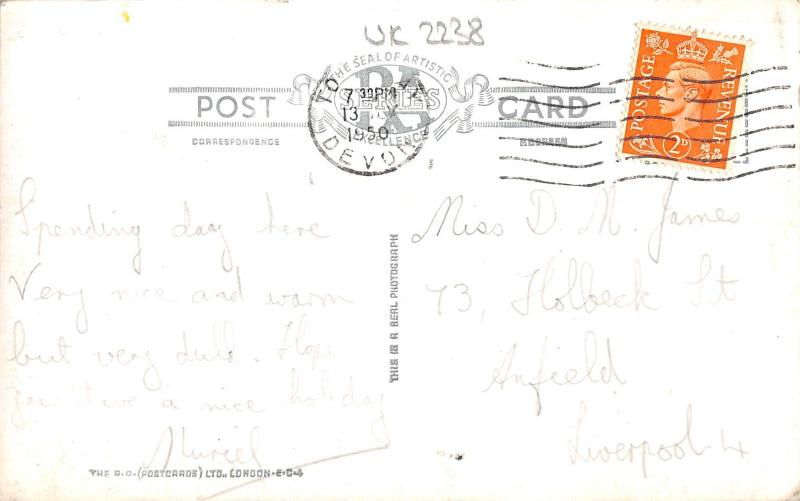 UK 2238
THE SEAL OF ARTISTIC
RA
SERIES
EXCELLENCE
POST CARD
CORRESPONDENCE
ADDRESS
7 30 PM
13
1950
DEVON
POSTAGE REVENUE
2D
Spending day here
Very nice and warm
but very dull. Hope
you have a nice holiday
Muriel
THIS IS A REAL PHOTOGRAPH
Miss D. M. James
73, Holbeck St
Anfield
Liverpool. 4
THE R.A. (POSTCARDS) LTD., LONDON·E·C·4